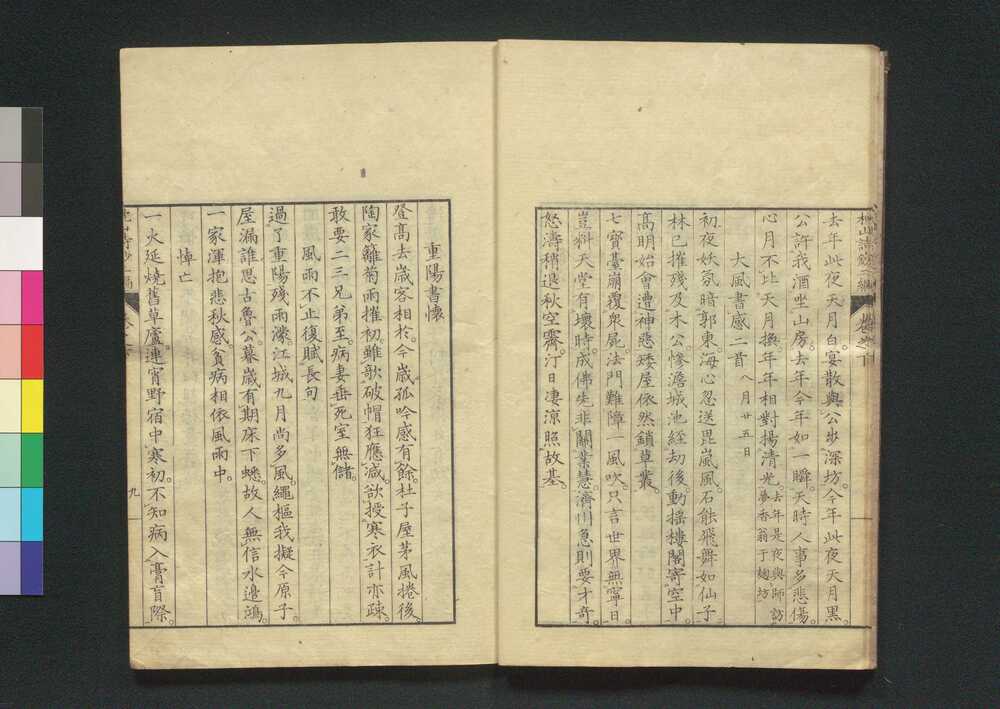 去年此夜天月白。宴散與公步深坊。今年此夜天月黑。
公許我酒坐山房。去年今年如一瞬。天時人事多悲傷。
心月不比天月換。年年相對揚清光。去年是夜與師訪夢香翁于麹坊
大風書感二首 八月廿五日
初夜妖氛暗郭東。海心忽送毘嵐風。石能飛舞如仙子。
林已摧殘及木公。慘澹城池經劫後。動搖樓閣寄空中。
高明始會遭神惡。矮屋依然鎖草叢。
七寶臺崩覆衆屍。法門難障一風吹。只言世界無寧日。
豈料天堂有壞時。成佛先非關業慧。濟川急則要才奇。
怒濤稍退秋空霽。汀日凄涼照故基。
重陽書懷
登高去歲客相於。今歲孤吟感有餘。杜子屋茅風捲後。
陶家籬菊雨摧初。雖歌破帽狂應減。欲授寒衣計亦疎。
敢要二三兄弟至。病妻垂死室無儲。
風雨不止復賦長句
過了重陽殘雨濛。江城九月尚多風。繩樞我擬今原子。
屋漏誰思古魯公。暮歲有期床下蟋。故人無信水邊鴻。
一家渾抱悲秋感。貧病相依風雨中。
悼亡
一火延燒舊草廬。連宵野宿中寒初。不知病入膏肓際。
九